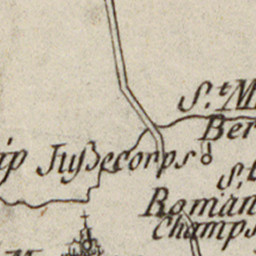 S.t M
Ber
ip Jußecorps
S.t
Roman
Champs